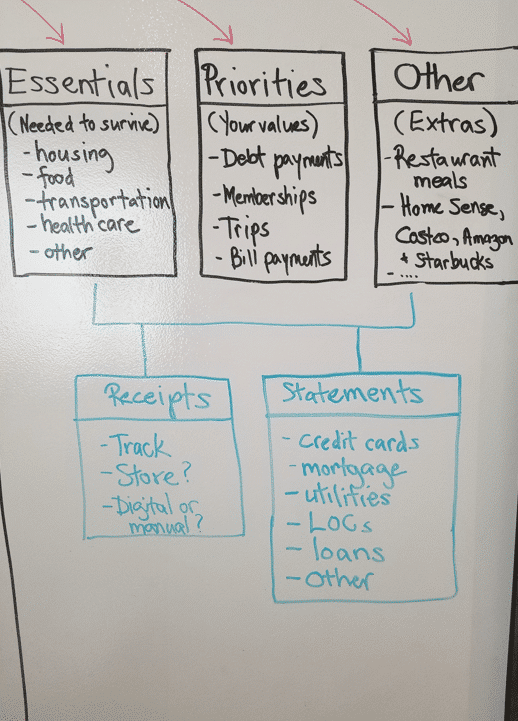 Essentials
(Needed to survive)
- housing
- food
- transportation
- health care
- other
Priorities
(Your values)
- Debt payments
- Memberships
- Trips
- Bill payments
Other
(Extras)
- Restaurant
meals
- Home Sense,
Costco, Amazon
+ Starbucks
- ....
Receipts
- Track
- Store?
- Digital or
manual?
Statements
- credit cards
- mortgage
- utilities
- LOCs
- loans
- other